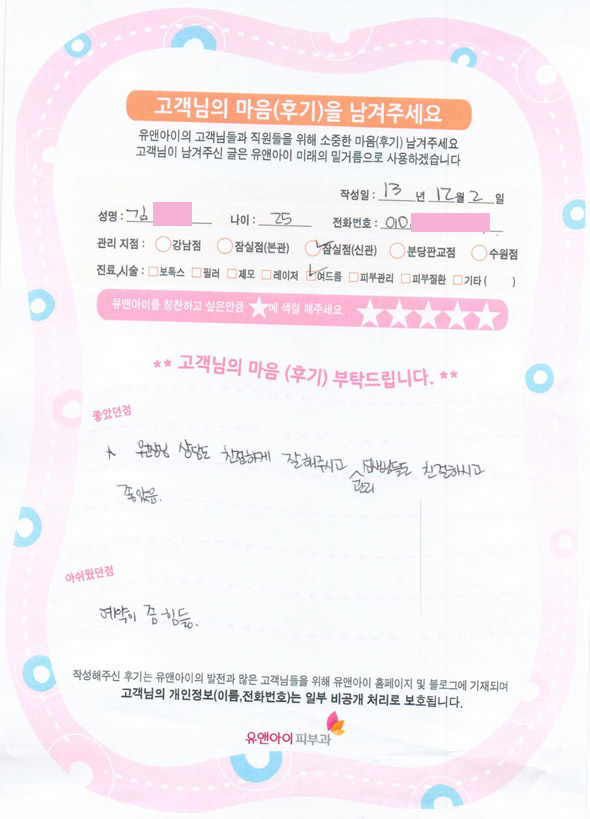 고객님의 마음(후기)을 남겨주세요
유앤아이의 고객님들과 직원들을 위해 소중한 마음(후기) 남겨주세요
고객님이 남겨주신 글은 유앤아이 미래의 밑거름으로 사용하겠습니다
작성일 : 13 년 12월 2 일
성명 : 김 나이 : 25 전화번호 : 010.
관리 지점 : 강남점 잠실점(본관) 잠실점(신관) 분당판교점 수원점
진료,시술 : 보톡스 필러 제모 레이저 여드름 피부관리 피부질환 기타 ( )
유앤아이를 칭찬하고 싶은만큼 ★에 색칠 해주세요. ★★★★★
** 고객님의 마음 (후기) 부탁드립니다. **
좋았던점
원장님 상담도 친절하게 잘해주시고 관리 선생님들도 친절하시고
좋았음.
아쉬웠던점
예약이 좀 힘듦.
작성해주신 후기는 유앤아이의 발전과 많은 고객님들을 위해 유앤아이 홈페이지 및 블로그에 기재되며
고객님의 개인정보(이름,전화번호)는 일부 비공개 처리로 보호됩니다.
유앤아이피부과